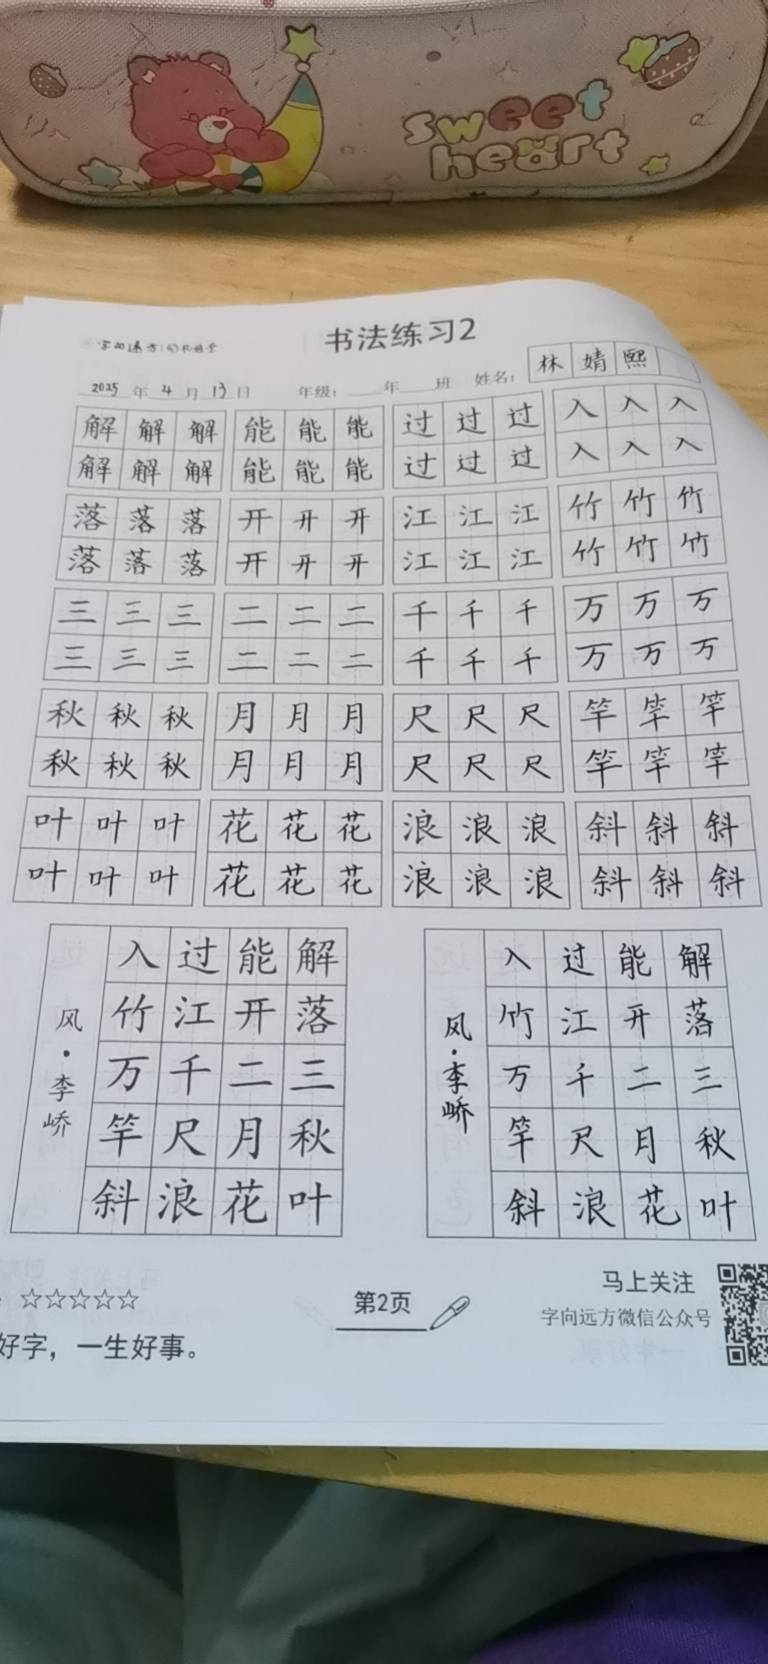 sweet
heart
书法练习2
2025 年 4 月 13 日 年级: 年 班 姓名: 林 婧 熙
解 解 解 能 能 能 过 过 过 入 入 入
解 解 解 能 能 能 过 过 过 入 入 入
落 落 落 开 开 开 江 江 江 竹 竹 竹
落 落 落 开 开 开 江 江 江 竹 竹 竹
三 三 三 二 二 二 千 千 千 万 万 万
三 三 三 二 二 二 千 千 千 万 万 万
秋 秋 秋 月 月 月 尺 尺 尺 竿 竿 竿
秋 秋 秋 月 月 月 尺 尺 尺 竿 竿 竿
叶 叶 叶 花 花 花 浪 浪 浪 斜 斜 斜
叶 叶 叶 花 花 花 浪 浪 浪 斜 斜 斜
解 落 三 秋 叶
能 开 二 月 花
过 江 千 尺 浪
入 竹 万 竿 斜
风·李峤
解 落 三 秋 叶
能 开 二 月 花
过 江 千 尺 浪
入 竹 万 竿 斜
风·李峤
☆☆☆☆☆
好字，一生好事。
第2页
马上关注
字向远方微信公众号